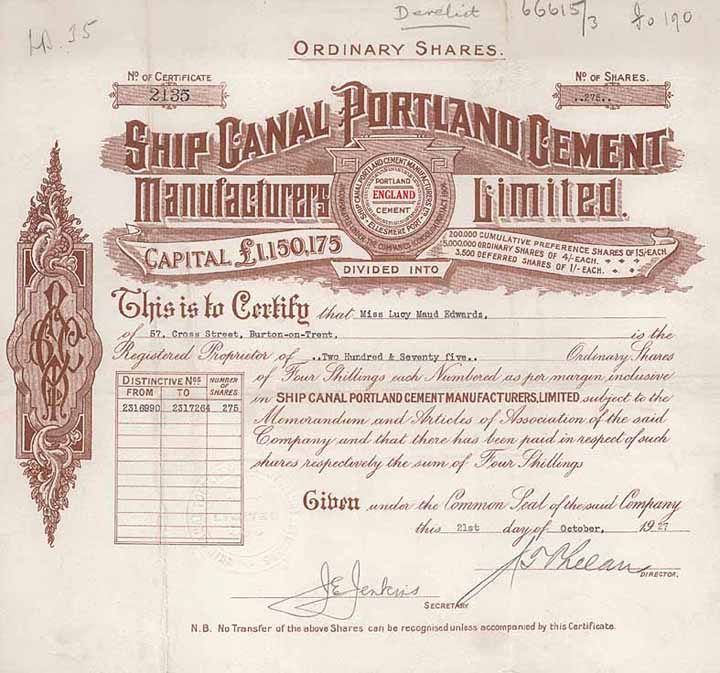 Derelict 66615/3 fo 190
ORDINARY SHARES.
No OF CERTIFICATE
2135
No OF SHARES.
..275..
SHIP CANAL PORTLAND CEMENT
Manufacturers Limited.
SHIP CANAL PORTLAND CEMENT MANUFACTURERS LTD
ELLESMERE PORT
PORTLAND
ENGLAND
CEMENT
CAPITAL £1,150,175
DIVIDED INTO
200,000 CUMULATIVE PREFERENCE SHARES OF 15/- EACH.
5,000,000 ORDINARY SHARES OF 4/- EACH.
3,500 DEFERRED SHARES OF 1/- EACH.
This is to Certify that Miss Lucy Maud Edwards,
of 57, Cross Street, Burton-on-Trent. is the
Registered Proprietor of ..Two Hundred & Seventy five.. Ordinary Shares
of Four Shillings each Numbered as per margin inclusive
in SHIP CANAL PORTLAND CEMENT MANUFACTURERS, LIMITED, subject to the
Memorandum and Articles of Association of the said
Company and that there has been paid in respect of such
shares respectively the sum of Four Shillings
DISTINCTIVE Nos NUMBER OF SHARES
FROM TO
2316990 2317264 275
Given under the Common Seal of the said Company
this 21st day of October, 1927
DIRECTOR.
J E Jenkins
SECRETARY
N.B. No Transfer of the above Shares can be recognised unless accompanied by this Certificate.